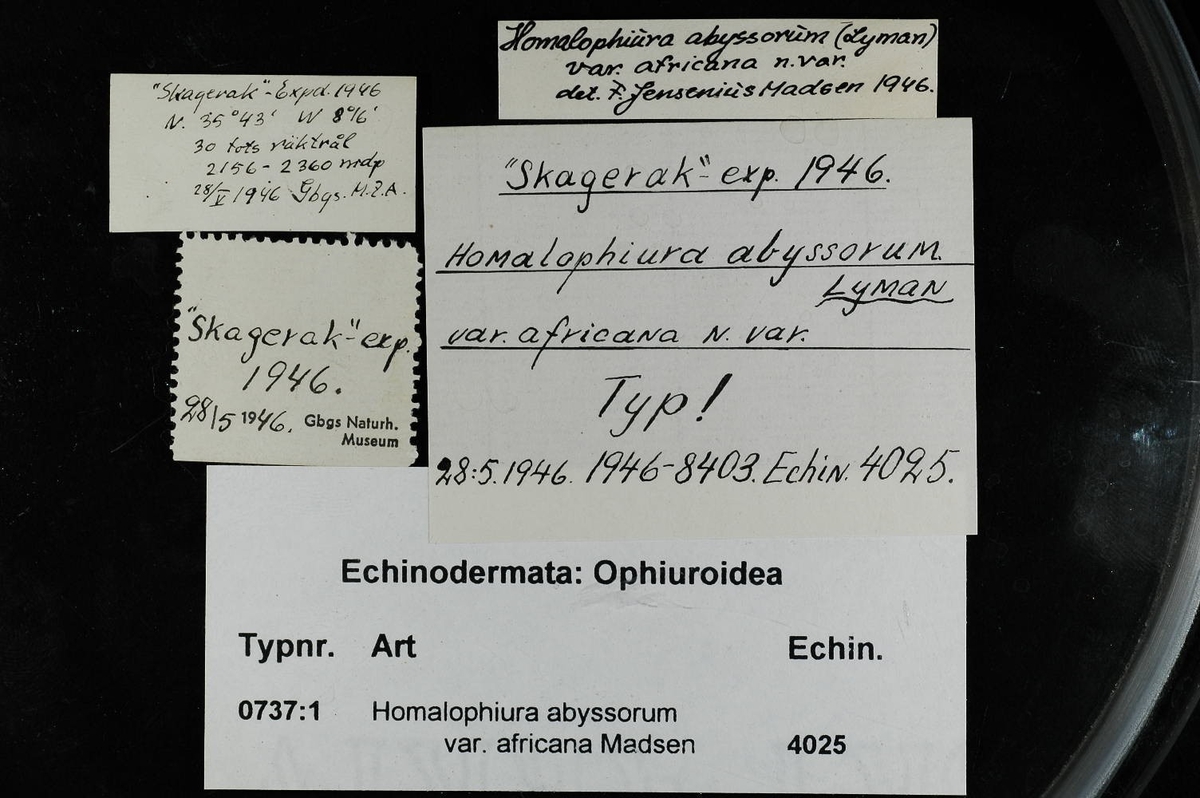 Homalophiura abyssorum (Lyman)
var. africana n. var.
det. F. Jensenius Madsen 1946.
"Skagerak"-Expd. 1946
N. 35°43' W 8°16'
30 fots räktrål
2156-2360 mdp
28/V 1946 Gbgs. M.Z.A.
"Skagerak"-exp. 1946.
Homalophiura abyssorum.
Lyman
var. africana N. var.
Typ!
28:5.1946. 1946-8403. Echin. 4025.
"Skagerak"-exp.
1946.
28/5 1946. Gbgs Naturh.
Museum
Echinodermata: Ophiuroidea
Typnr. Art Echin.
0737:1 Homalophiura abyssorum
var. africana Madsen 4025